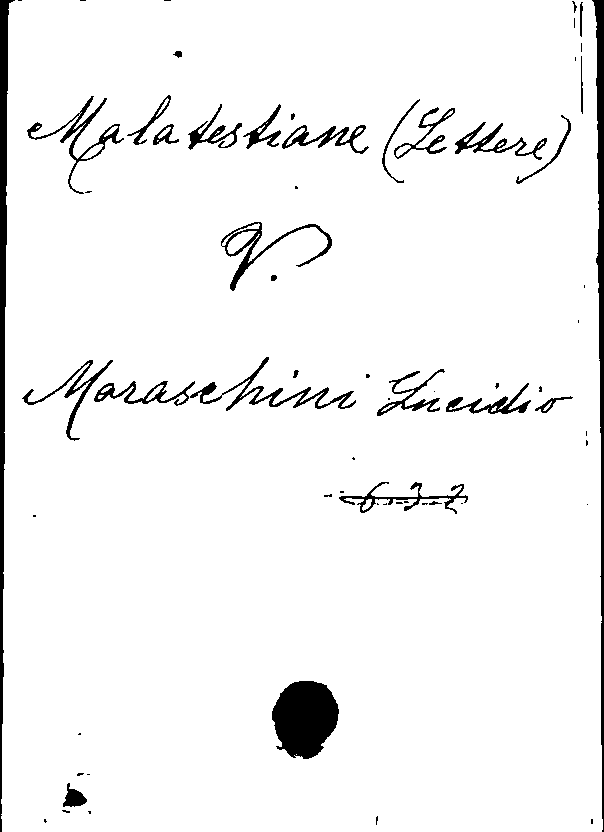 Malatestiane (Lettere)
V.
Maraschini Lucidio
632